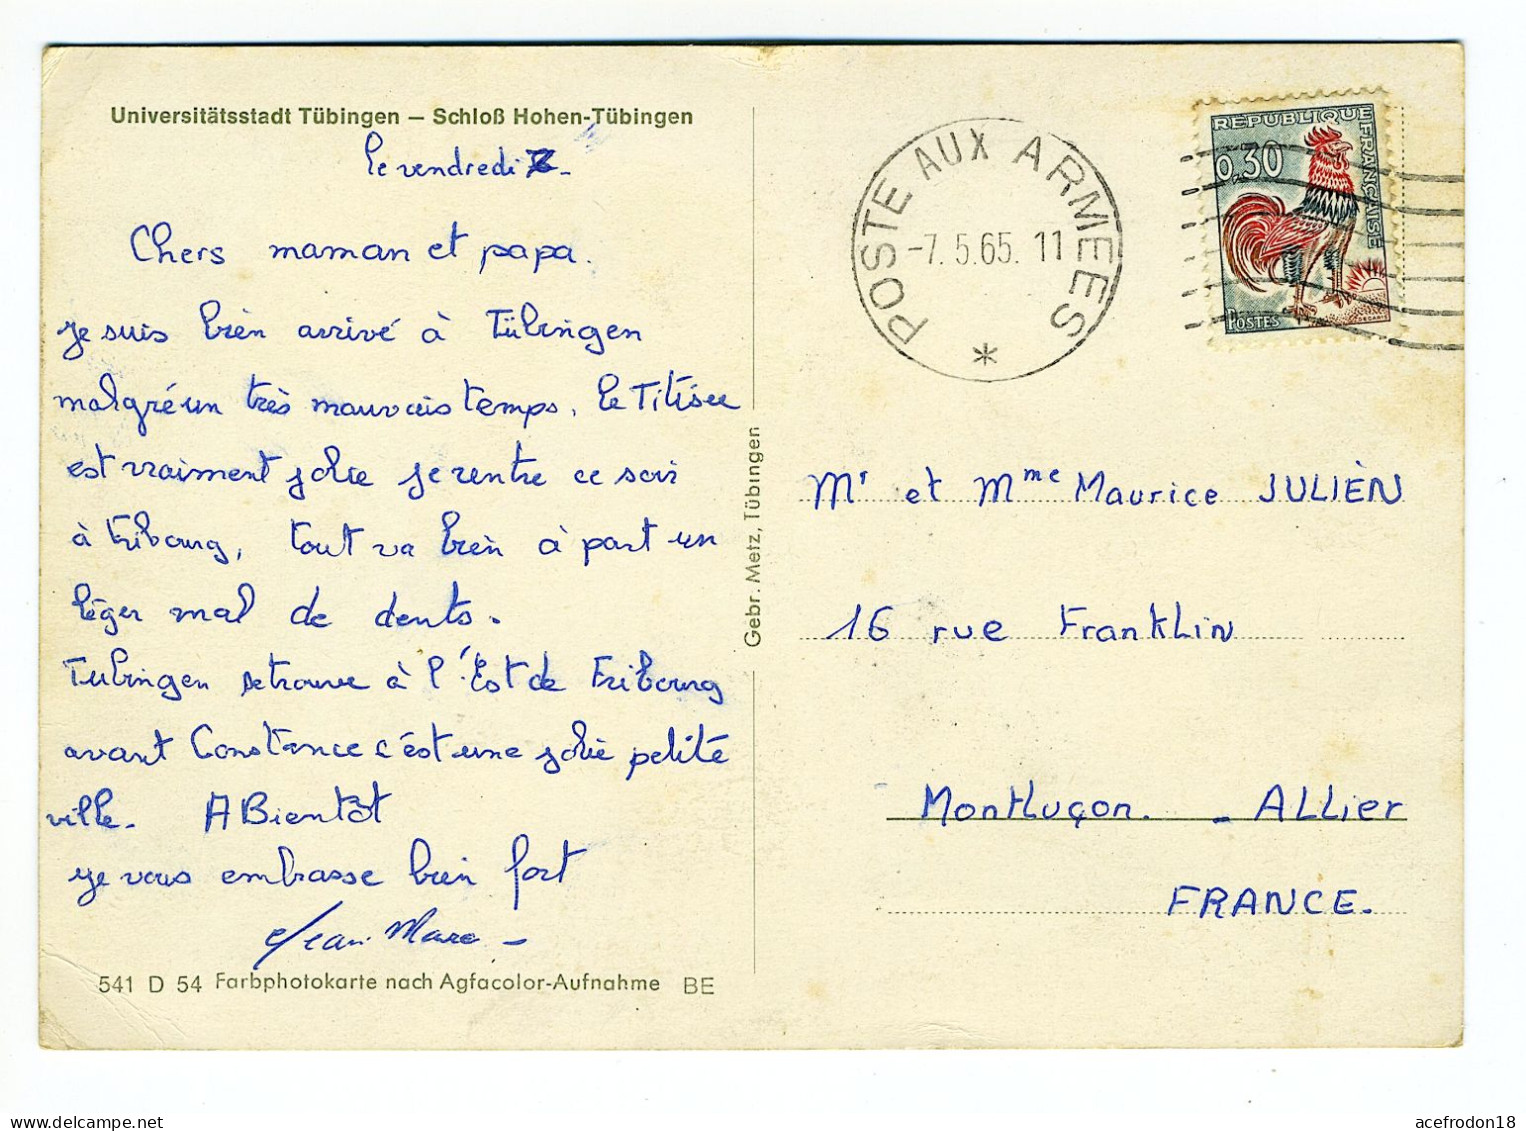 Universitätsstadt Tübingen – Schloß Hohen-Tübingen
le vendredi 7-
Chers maman et papa.
je suis bien arrivé à Tübingen
malgré un très mauvais temps, le Titisee
est vraiment jolie je rentre ce soir
à Fribourg, tout va bien à part un
léger mal de dents.
Tubingen se trouve à l'Est de Fribourg
avant Constance c'est une jolie petite
ville. A Bientôt
je vous embrasse bien fort
Jean Marc -
541 D 54 Farbphotokarte nach Agfacolor-Aufnahme BE
Gebr. Metz, Tübingen
POSTE AUX ARMEES
-7. 5.65. 11
*
REPUBLIQUE FRANÇAISE
0,30
POSTES
DECARIS
Mr et Mme Maurice JULIEN
16 rue Franklin
Montluçon. - ALLier
FRANCE.
acefrodon18